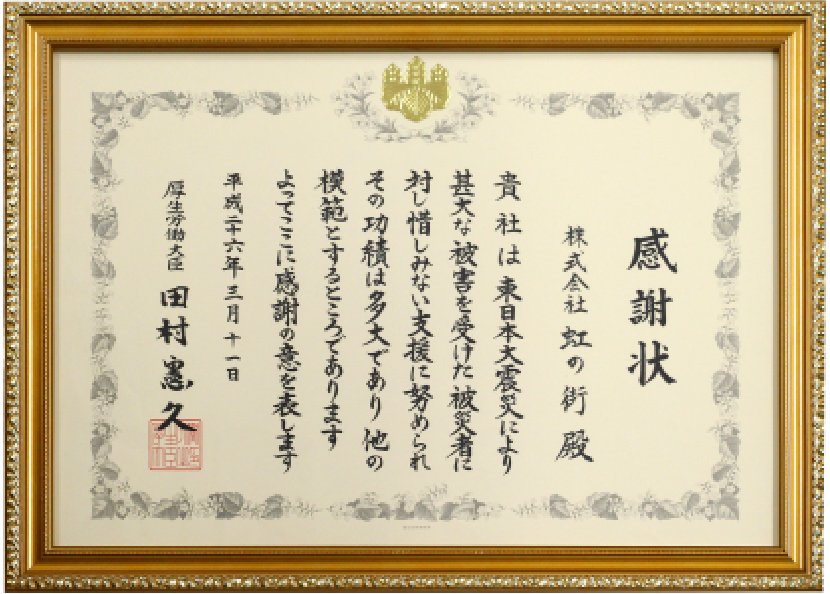 感謝状
株式会社 虹の街 殿
貴社は東日本大震災により
甚大な被害を受けた被災者に
対し惜しみない支援に努められ
その功績は多大であり他の
模範とするところであります
よってここに感謝の意を表します
平成二十六年三月十一日
厚生労働大臣 田村憲久